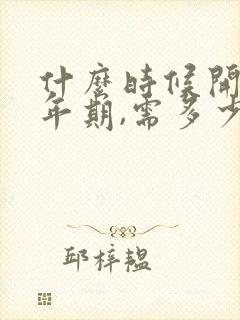 什麼時候開
年期,需多少
邱梓韞